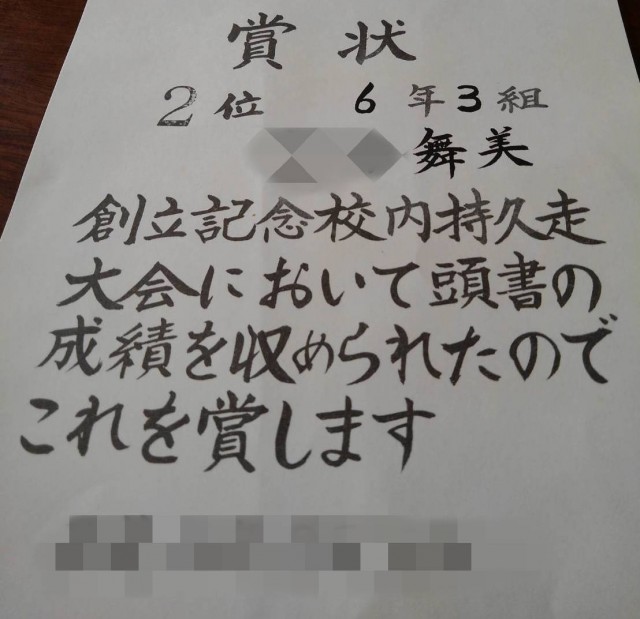 賞状
2位 6年3組
舞美
創立記念校内持久走
大会において頭書の
成績を収められたので
これを賞します